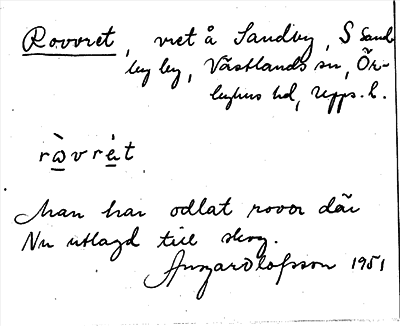 Rovvret, vret å Sandby, S Sand-
by by, Västlands sn, Ör-
byhus hd, Upps. l.
ròvrèt
Man har odlat rovor där
Nu utlagd till skog.
Ansgar Olofsson 1951